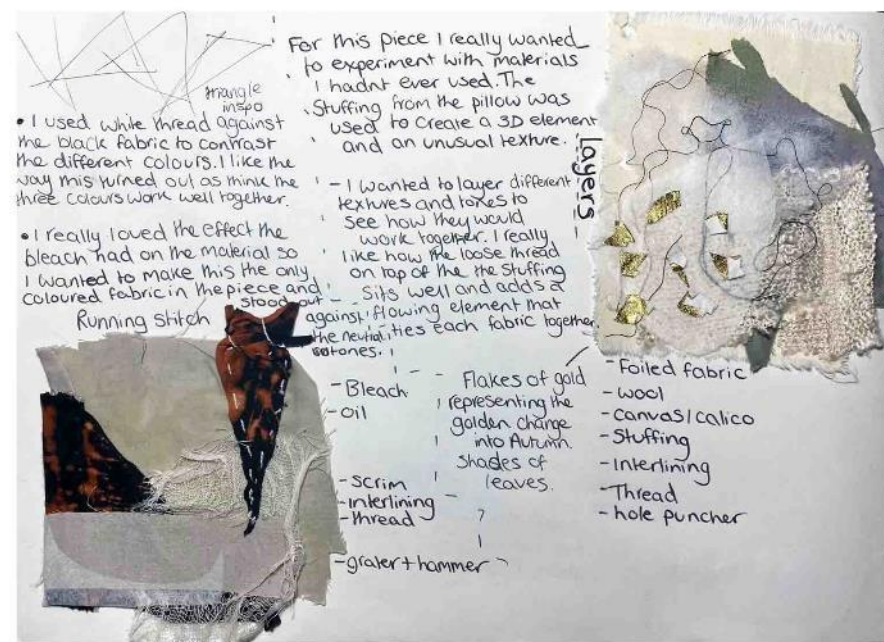 triangle
inspo
• I used white thread against
the black fabric to contrast
the different colours. I like the
way this turned out as think the
three colours work well together.
• I really loved the effect the
bleach had on the material so
I wanted to make this the only
coloured fabric in the piece and
stood out
against
the neutral
tones.
Running stitch
For this piece I really wanted
to experiment with materials
I hadnt ever used. The
Stuffing from the pillow was
used to create a 3D element
and an unusual texture.
- I wanted to layer different
textures and tones to
see how they would
work together. I really
like how the loose thread
on top of the the stuffing
sits well and adds a
flowing element that
ties each fabric together.
layers
- Bleach
- oil
- scrim
- Interlining
- thread
- grater + hammer
Flakes of gold
representing the
golden change
into Autumn
shades of
leaves.
- Foiled fabric
- wool
- canvas/calico
- Stuffing
- Interlining
- Thread
- hole puncher